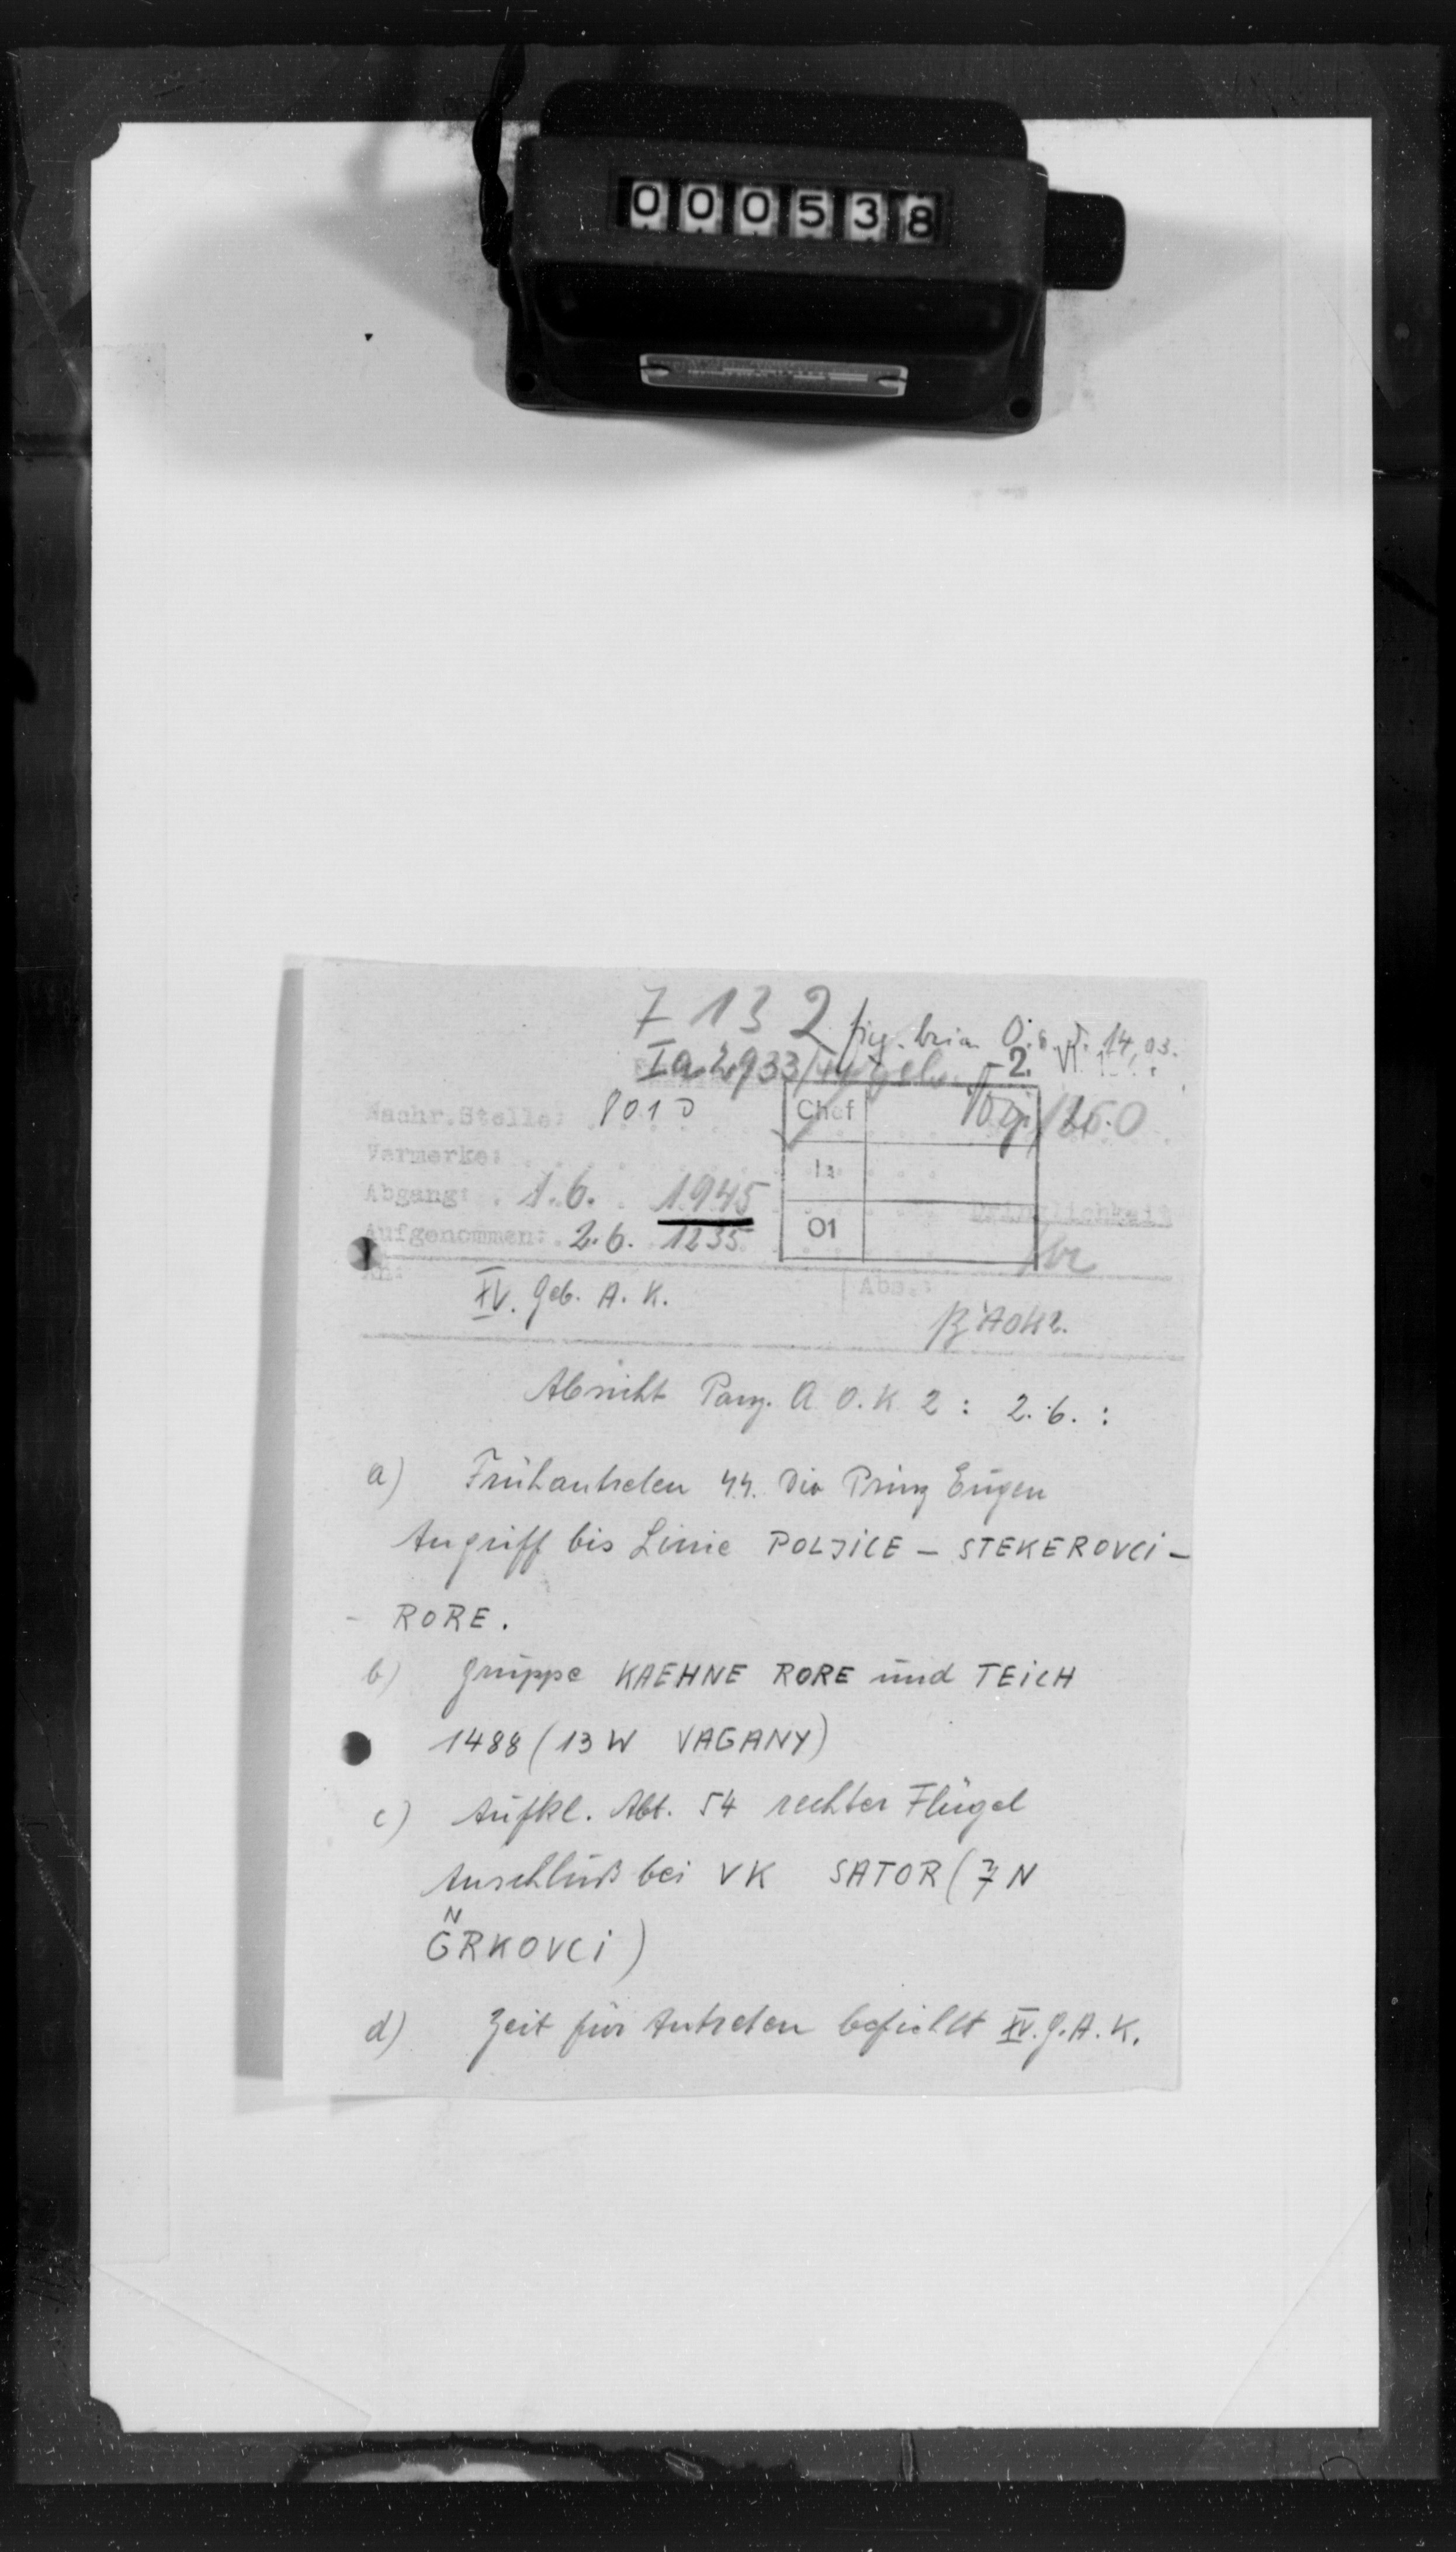 000538
7 13 2
Ia 2933/44 geh. -2. VI.
Nachr.Stelle: 8010 Chef
Vermerke:
Ia
Abgang: 1.6. 1945
Dringlichkeit
Aufgenommen: 2.6. 1235 O1
An: XV. Geb. A. K. Abs.:
Absicht Panz. A O.K 2 : 2.6. :
a) Frühantreten SS. Div Prinz Eugen
Angriff bis Linie POLJICE – STEKEROVCI –
- RORE.
b) Gruppe KAEHNE RORE und TEICH
1488 (13 W VAGANY)
c) Aufkl. Abt. 54 rechter Flügel
Anschluß bei VK SATOR (7 N
N
GRKOVCI)
d) Zeit für Antreten befiehlt XV. G. A. K.